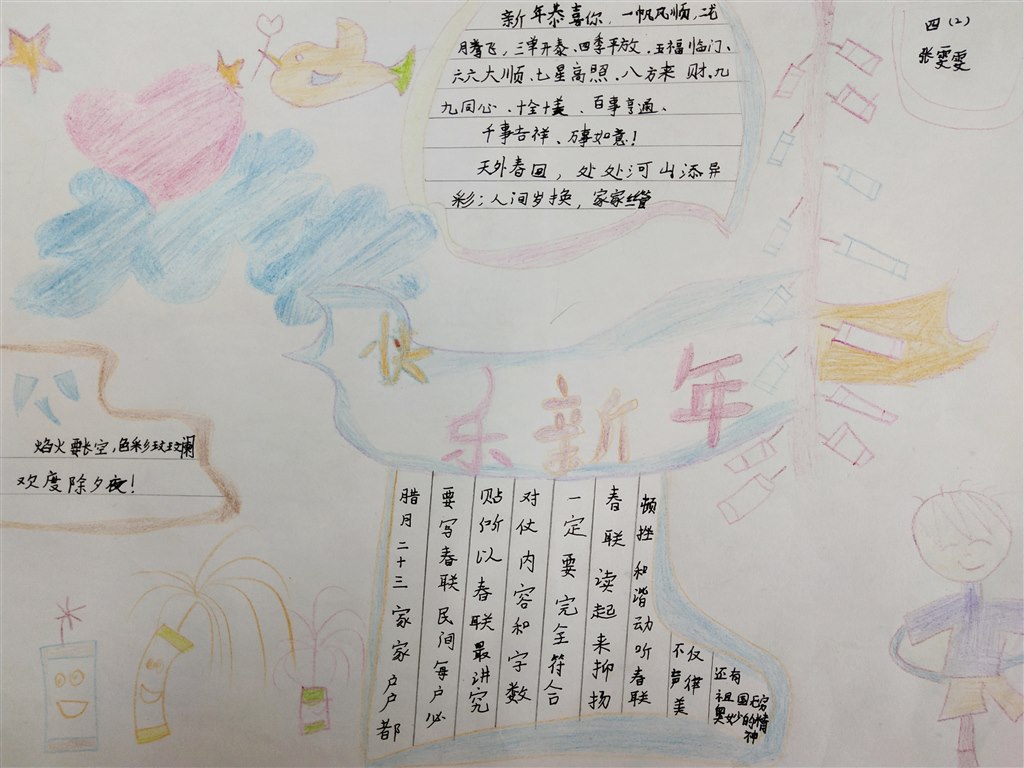 新年恭喜你,一帆风顺,二龙
月腾飞,三羊开泰、四季平放、五福临门、
六六大顺、七星高照、八方来财、九
九同心、十全十美、百事亨通、
千事吉祥、万事如意!
天外春回,处处河山添异
彩;人间岁换,家家丝管
四(2)
张雯雯
快乐新年
焰火要长空,色彩玟玟斓
欢度除夕夜!
腊月二十三家家户户都
要写春联民间每户必
贴所以春联最讲究
对仗内容和字数
一定要完全符合
春联读起来抑扬
顿挫和谐动听春联
不仅声律美
还有祖国
奥妙的精神